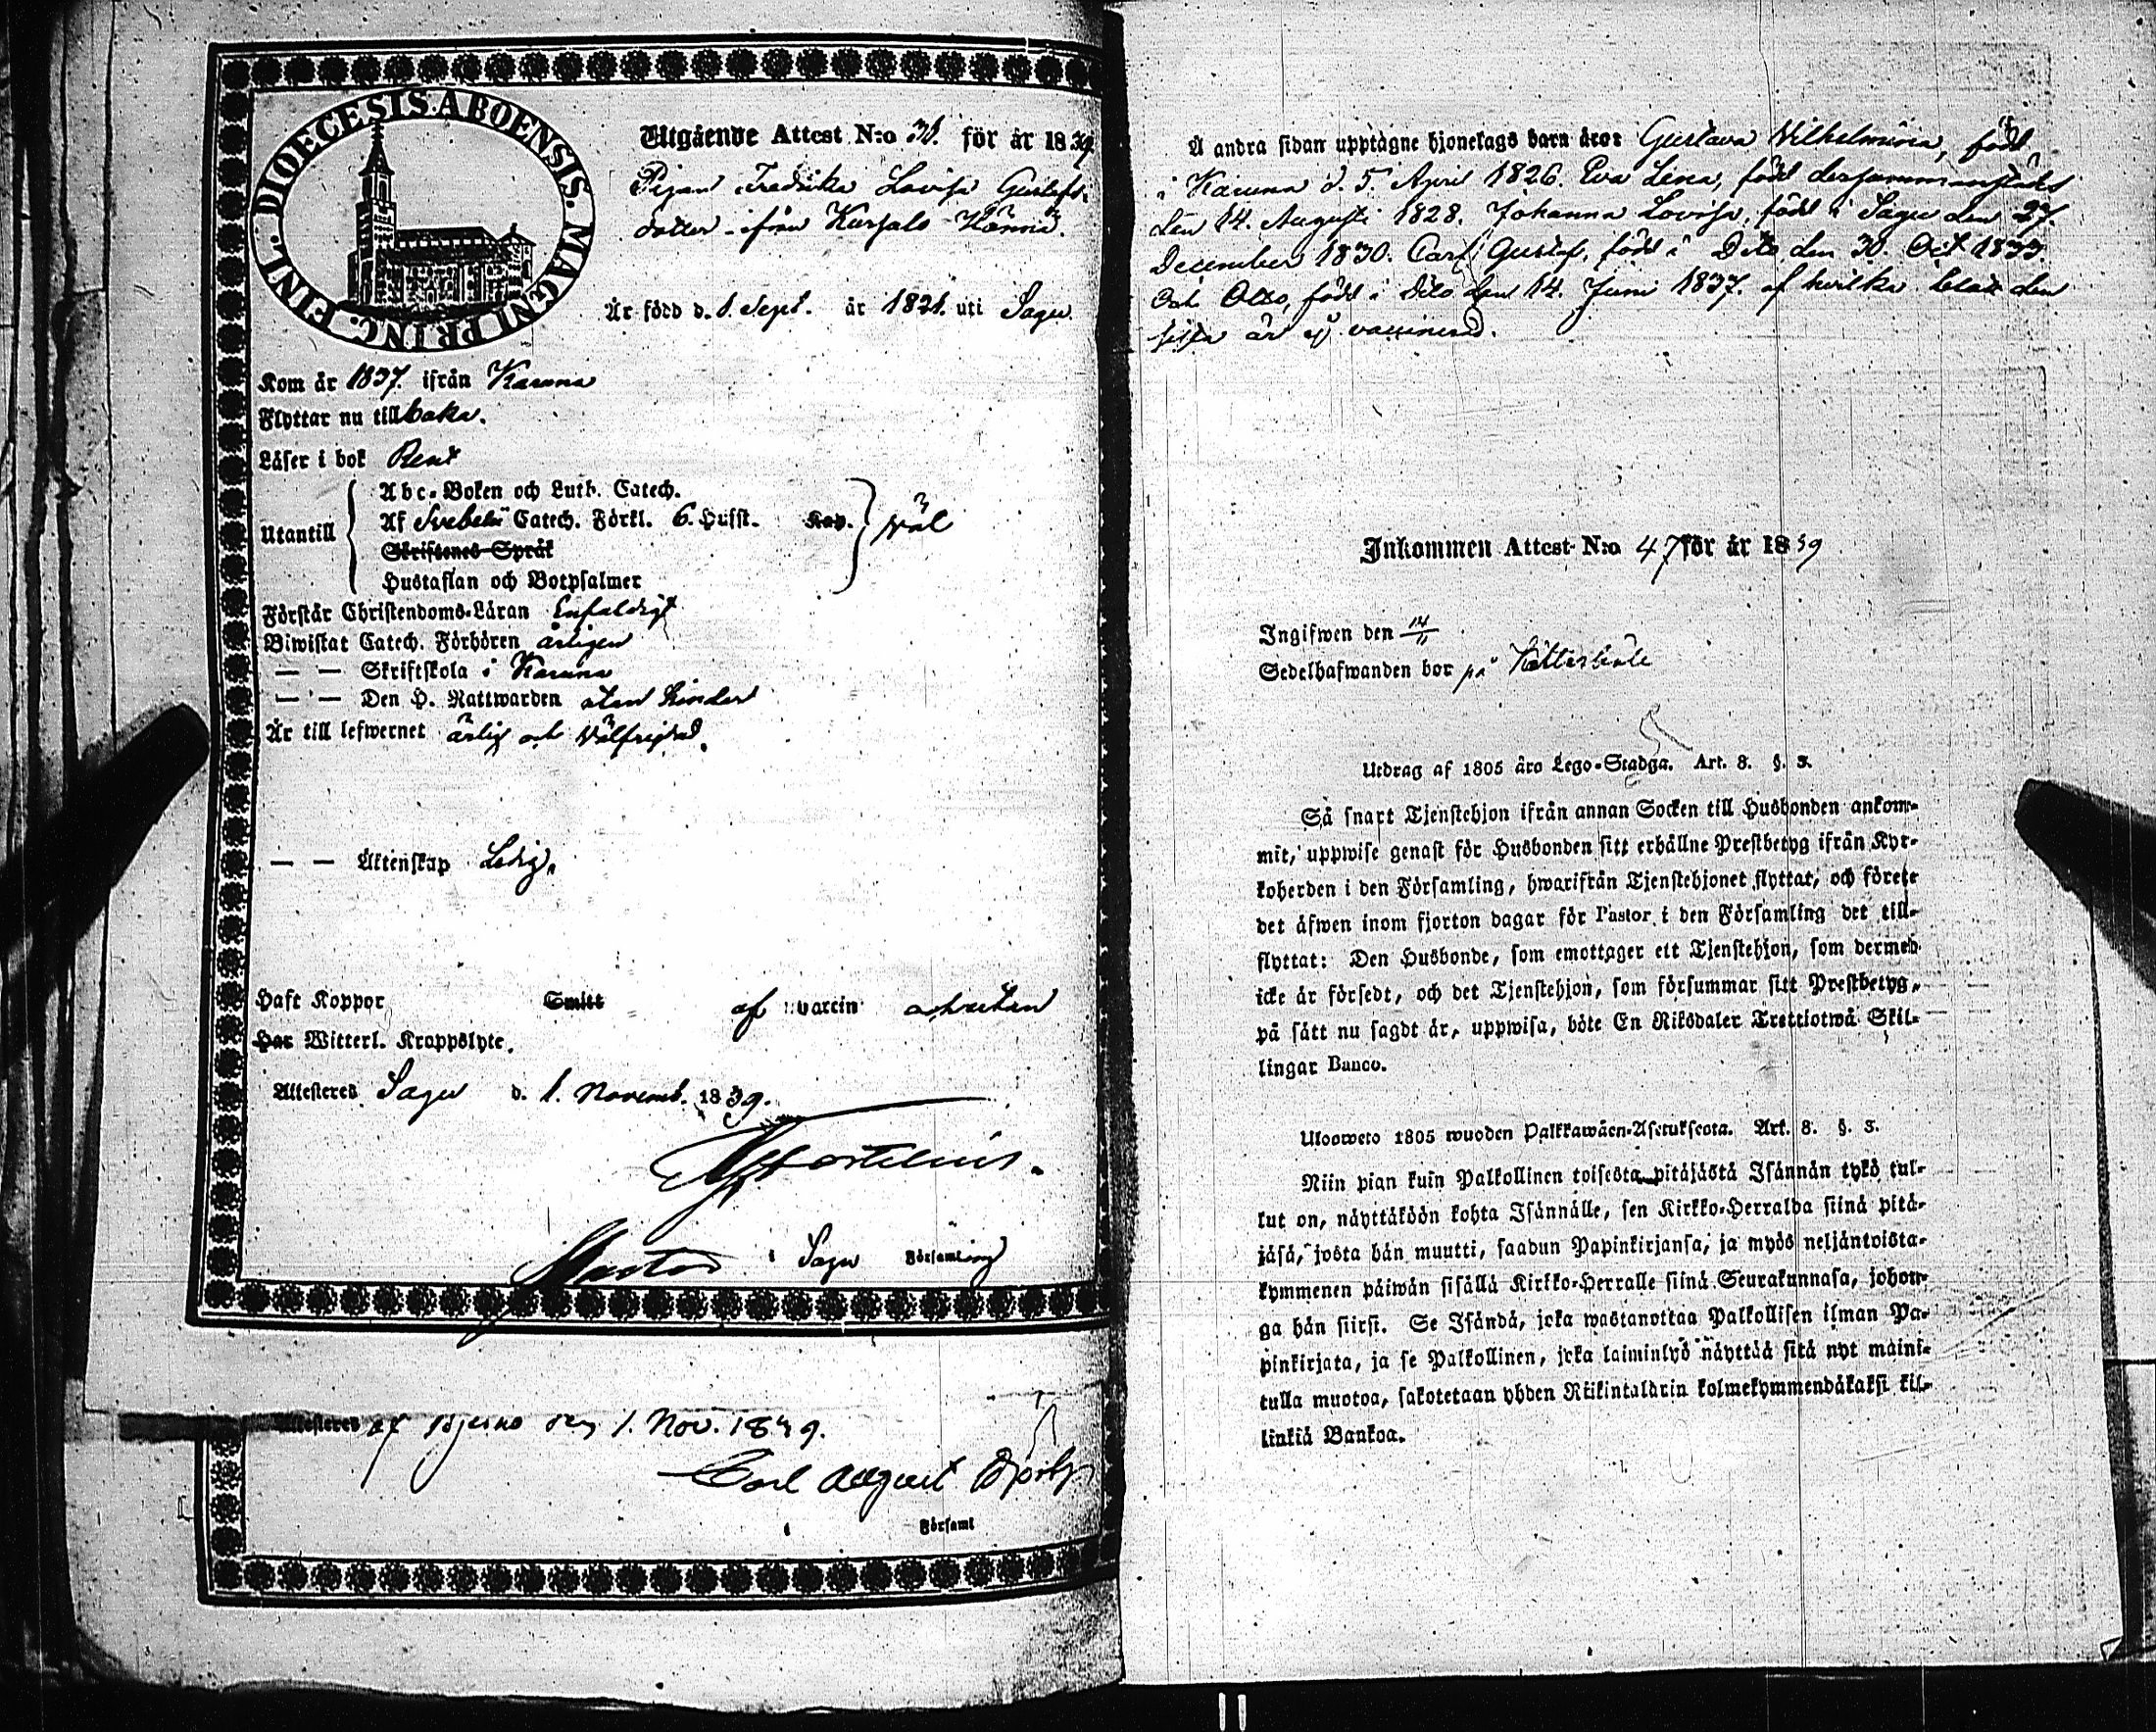 DIOECESIS. ABOENSIS. MAGNI PRINC. FINL.
Utgående Attest N:o 38. för år 1839
Pigan Fredrika Lovisa Gustafs-
dotter ifrån Karsalo
Är född d. 1. Sept. år 1821. uti Sagu
Kom år 1837. ifrån Karuna
Flyttar nu tillbaka.
Läser i bok Rent
Utantill
Abc-Boken och Luth. Catech.
Af Svebelii Catech. Förkl. 6. Hufst. Kap.
Skriftenes Språk
Hustaflan och Botpsalmer
väl
Förstår Christendoms-Läran Enfaldigt
Biwistat Catech. Förhören årligen
— — Skriftskola i Karuna
— — Den H. Nattwarden utan hinder
Är till lefwernet ärlig och välfrejdad.
— — Äktenskap Ledig.
Haft Koppor Smitt af vaccin
Har Witterl. Kroppslyte.
Attesteras Sagu d. 1. Novemb. 1839.
Pastor i Sagu Församling
Attesteras af Bjerno den 1. Nov. 1839.
Carl August
Församl
Å andra sidan upptagne hjonelags barn äro: Gustava Vilhelmina, född
i Karuna d. 5. April 1826. Eva Lena, född dersammanstädes
den 14. Augusti 1828. Johanna Lovisa, född i Sagu den 27.
December 1830. Carl Gustaf, född i Dito den 30. Oct 1833.
och Otto, född i Dito den 14. Juni 1837. af hvilka blott den
sista är ej vaccinerad.
Inkommen Attest N:o 47 för år 1839
Ingifwen den 14/11
Sedelhafwanden bor på
Utdrag af 1805 års Lego-Stadga. Art. 8. §. 3.
Så snart Tjenstehjon ifrån annan Socken till Husbonden ankom-
mit, uppwise genast för Husbonden sitt erhållne Prestbetyg ifrån Kyr-
koherden i den Församling, hwarifrån Tjenstehjonet flyttat, och förete
det äfwen inom fjorton dagar för Pastor i den Församling det till-
flyttat: Den Husbonde, som emottager ett Tjenstehjon, som dermed
icke är försedt, och det Tjenstehjon, som försummar sitt Prestbetyg,
på sätt nu sagdt är, uppwisa, böte En Riksdaler Trettiotwå Skil-
lingar Banco.
Uloosweto 1805 wuoden Palkkawäen-Asetuksesta. Art. 8. §. 3.
Niin pian kuin Palkollinen toisesta pitäjästä Isännän tykö tul-
lut on, näyttäköön kohta Isännälle, sen Kirkko-Herralda siinä pitä-
jäsä, josta hän muutti, saadun Papinkirjansa, ja myös neljäntoista-
kymmenen päiwän sisällä Kirkko-Herralle siinä Seurakunnasa, johon-
ga hän siirsi. Se Isändä, joka wastanottaa Palkollisen ilman Pa-
pinkirjata, ja se Palkollinen, joka laiminlyö näyttää sitä nyt maini-
tulla muotoa, sakotetaan yhden Riikintaldrin kolmekymmendäkaksi kil-
linkiä Bankoa.